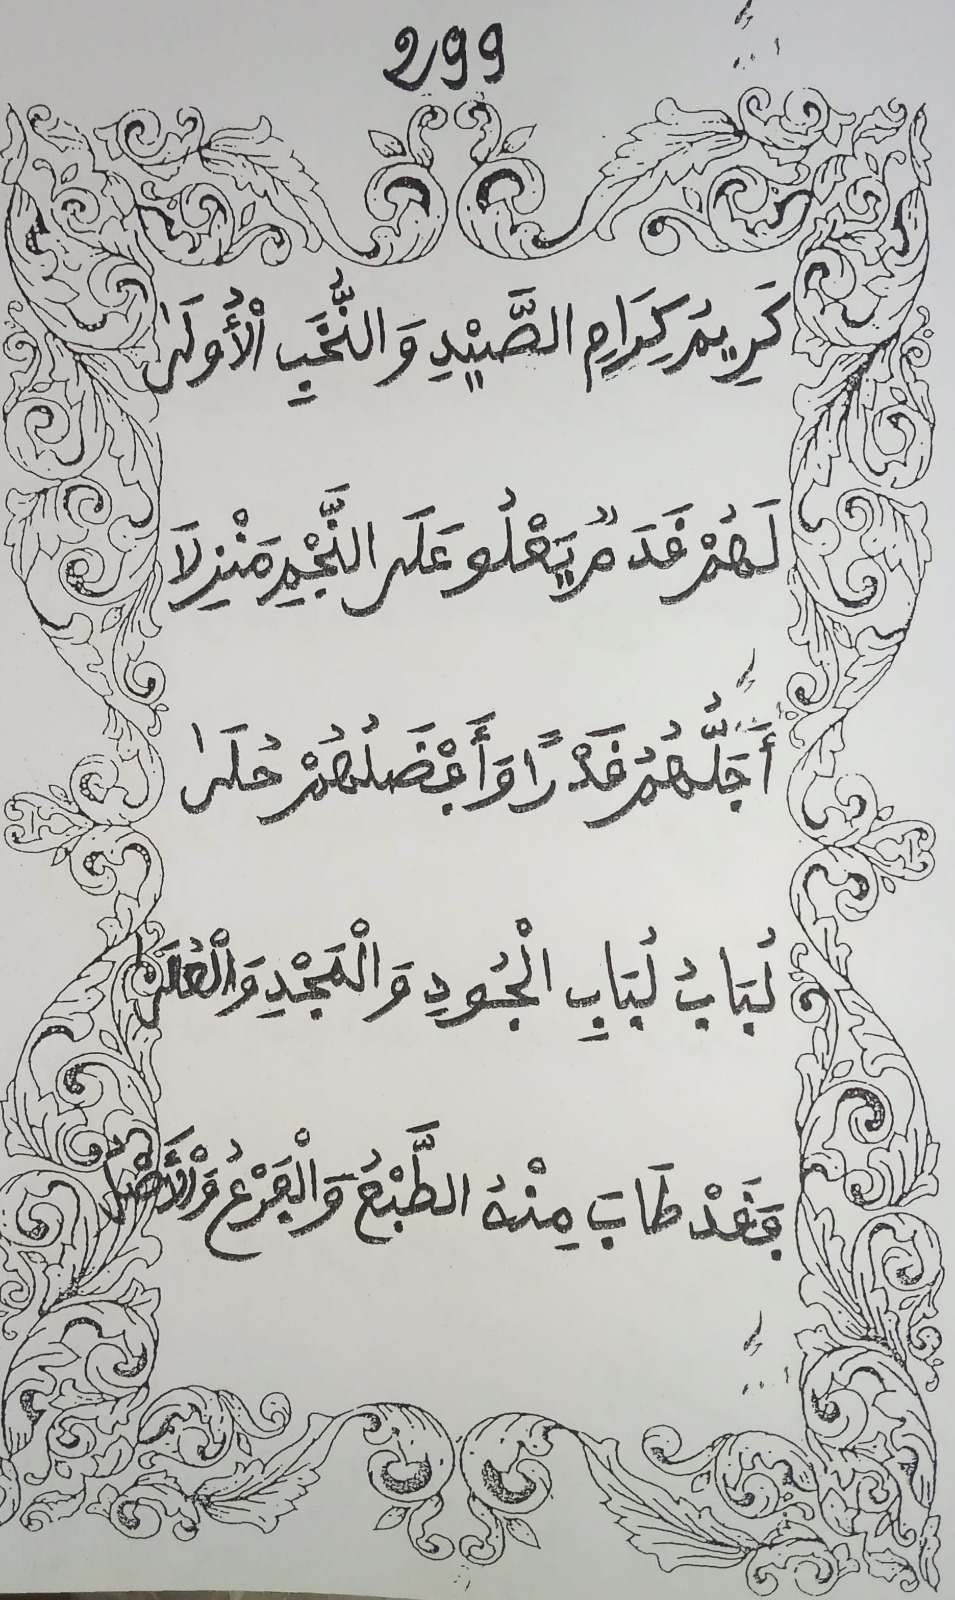 299
كَرِيمُ كِرَامِ الصَّيْدِ وَالنُّخَبِ الْأُولَى
لَهُمْ قَدَمٌ يَعْلُو عَلَى النَّجْمِ مَنْزِلَا
أَجَلُّهُمُ قَدْرًا وَأَفْضَلُهُمْ حُلَى
لُبَابُ لُبَابِ الْجُودِ وَالْمَجْدِ وَالْعُلَى
فَقَدْ طَابَ مِنْهُ الطَّبْعُ وَالْفَرْعُ وَالْأَصْلُ